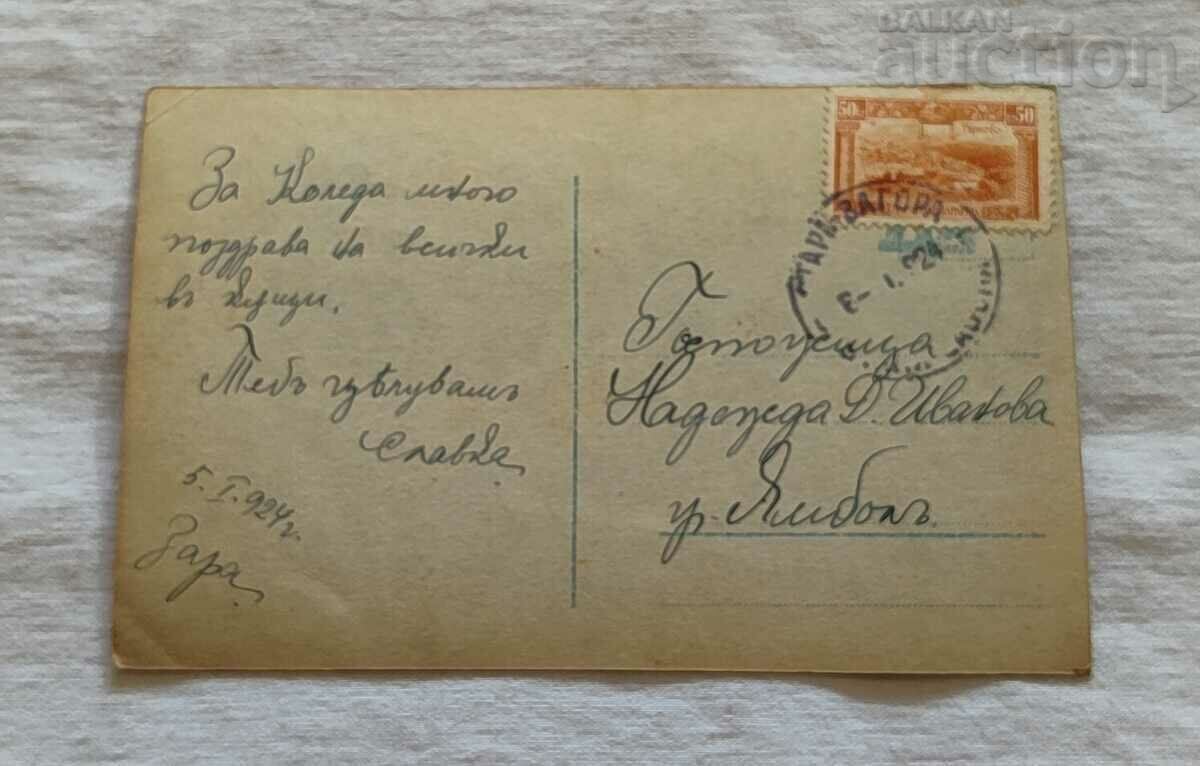 БАЛКАН
auction
За Коледа много
поздрава на всички
въ къщи.
Тебъ цѣлувамъ
Славка
5.I.924г.
Зара
50 50
Търново
СТАРА-ЗАГОРА
8-I.924
Госпожица
Надежда Д. Иванова
гр. Ямболъ